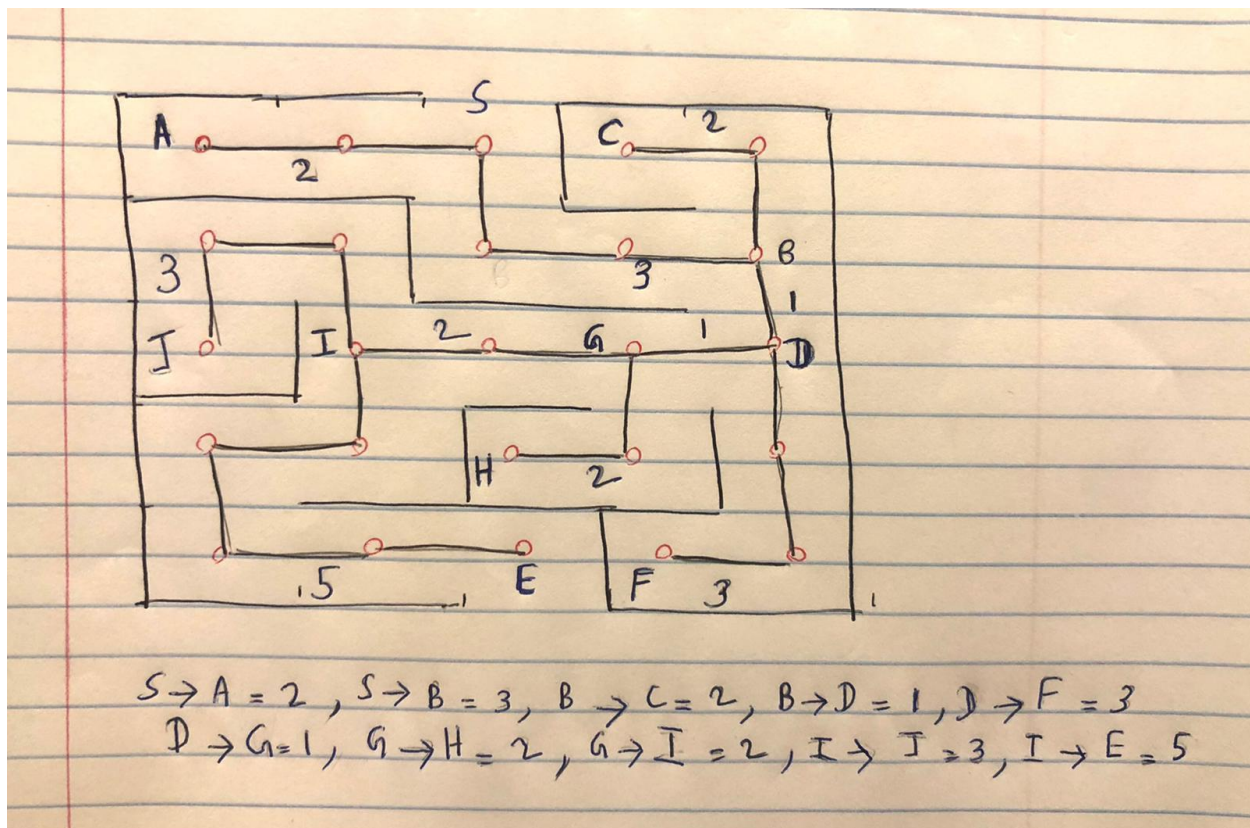 S
A
C
2
2
B
3
3
1
J
I
2
G
1
D
H
2
5
E
F
3
S → A = 2 , S → B = 3, B → C = 2, B → D = 1, D → F = 3
D → G = 1, G → H = 2 , G → I = 2 , I → J = 3, I → E = 5